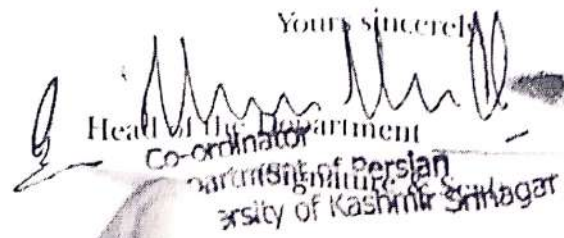 Yours sincerely
Head of the Department
Co-ordinator
partment of Persian
Signature &
ersity of Kashmir Srinagar